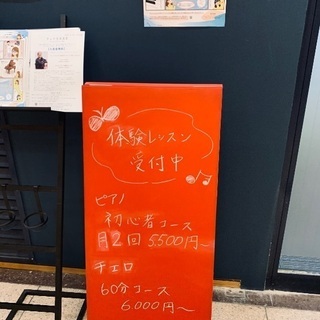 体験レッスン
受付中
ピアノ
初心者コース
月2回 5,500円〜
チェロ
60分コース
6,000円〜